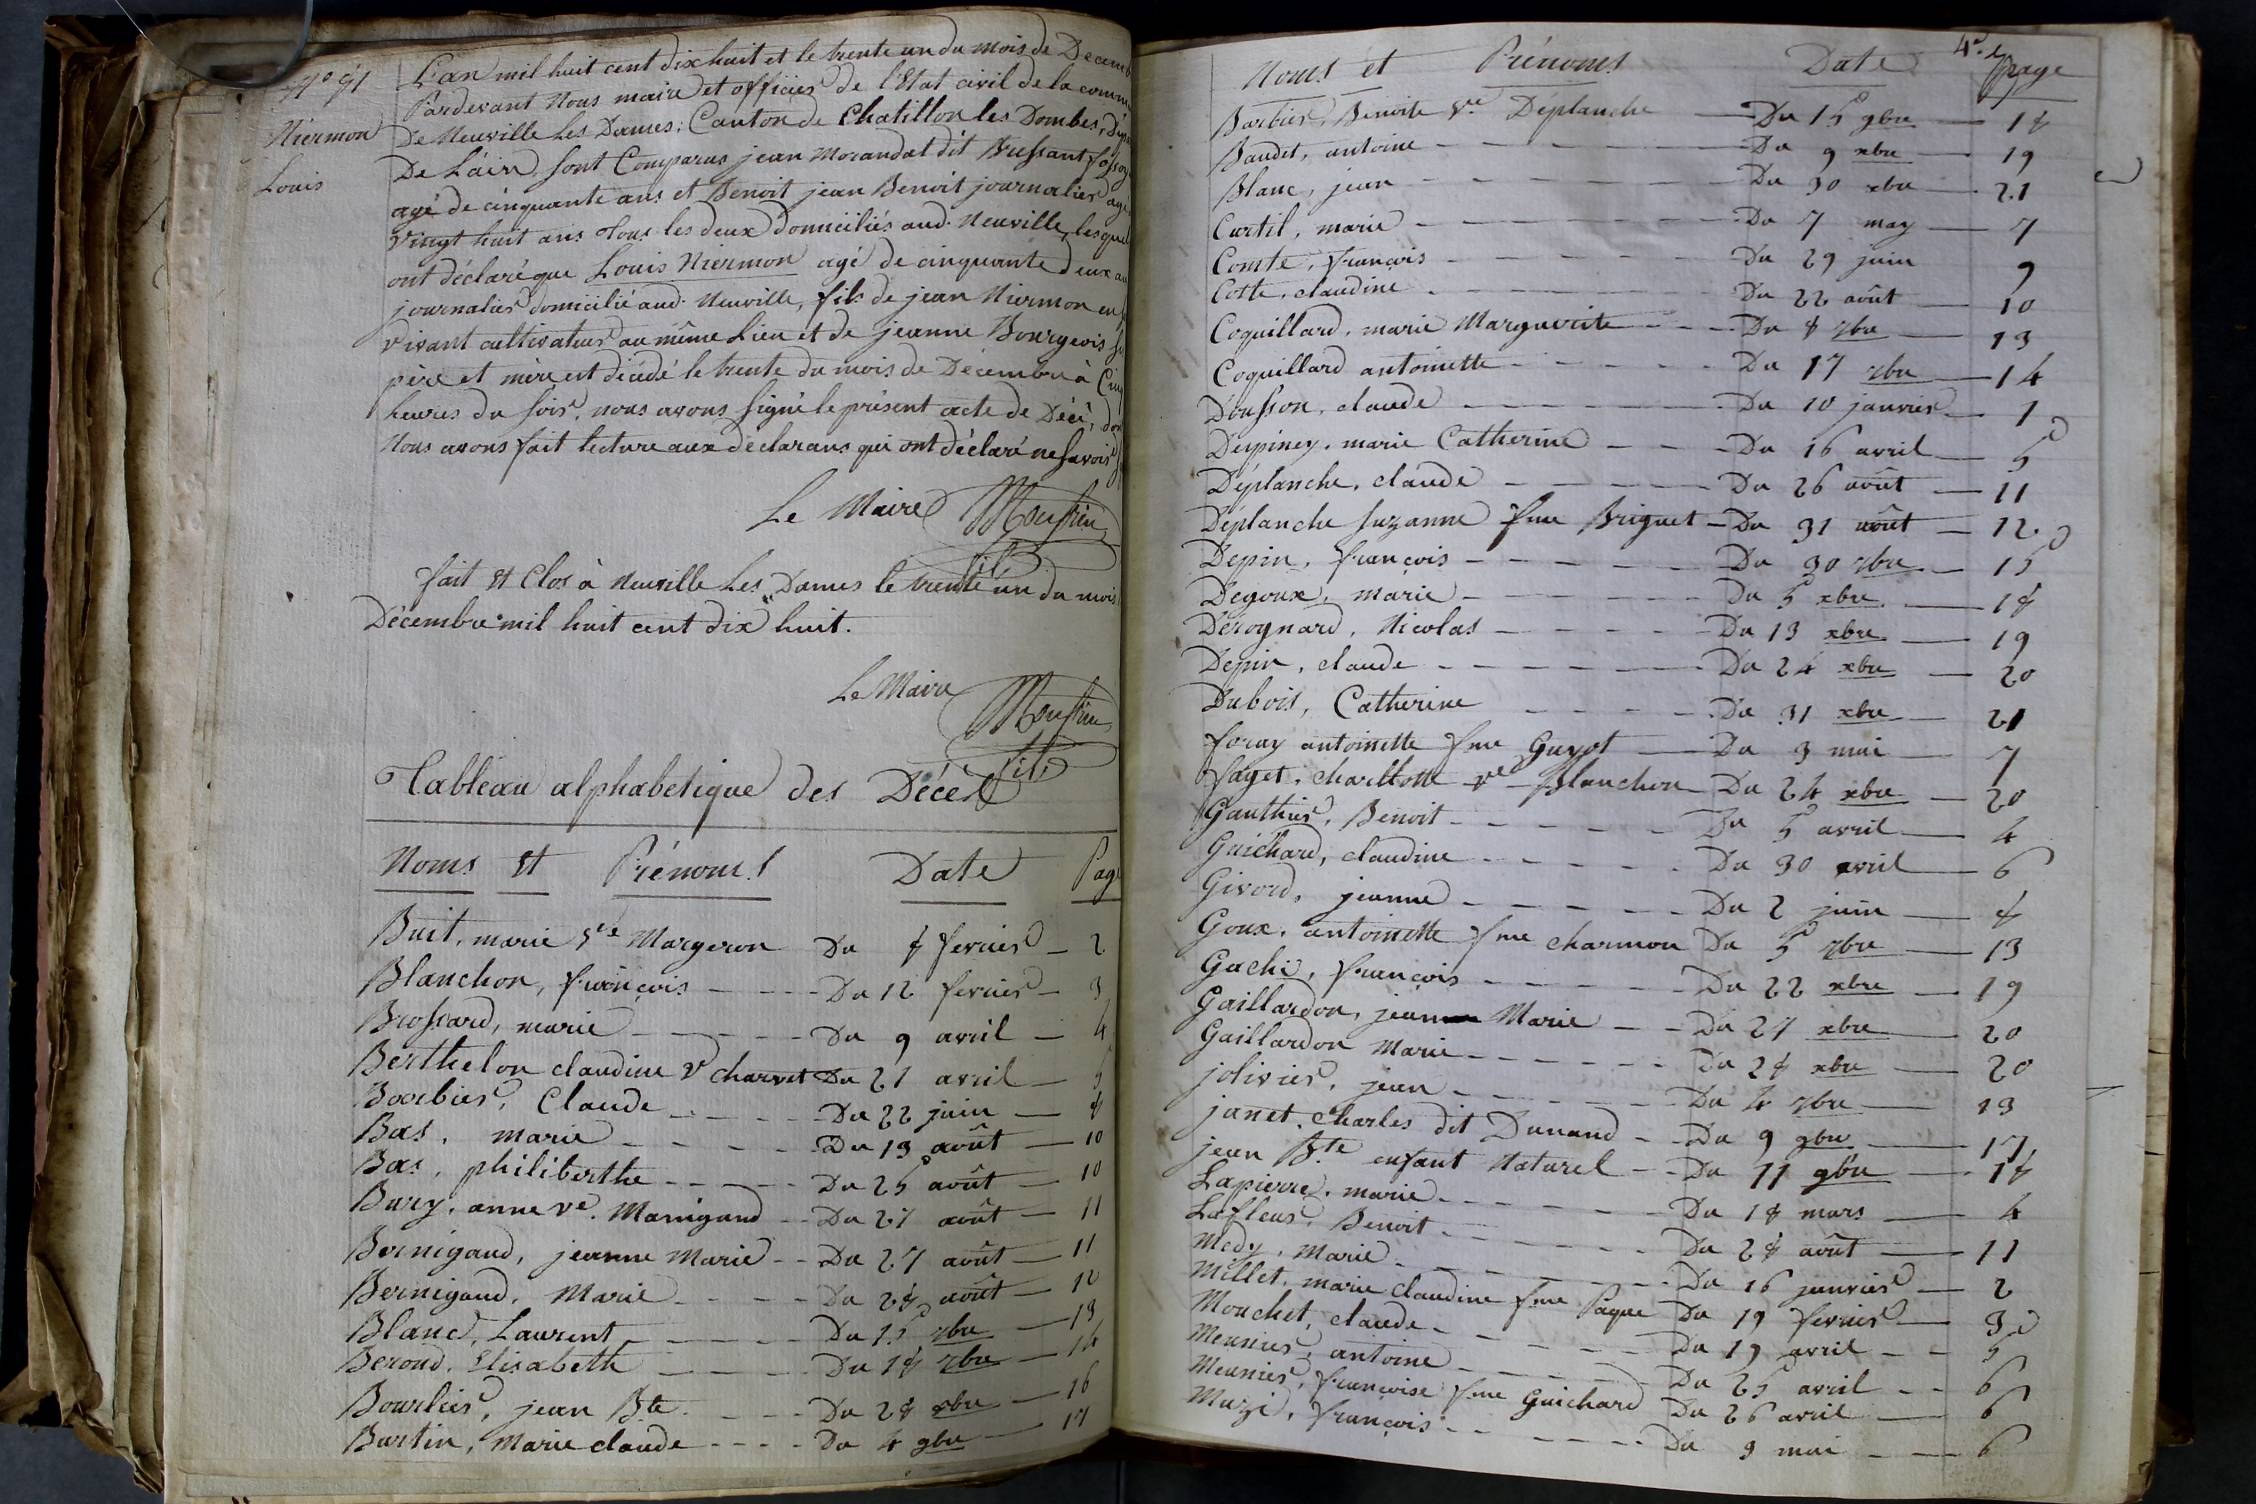 N.º 91
Niermon
Louis
L'an mil huit cent dix huit et le trente un du mois de Décemb
Pardevant Nous maire et officier de l'Etat civil de la comm
De Neuville Les Dames, Canton de Chatillon les Dombes, Dépa
De L'ain, sont Comparus jean Morandat dit Bressant
agé de cinquante ans et Benoit jean Benoit journalier agé
Vingt huit ans Tous les deux domiciliés aud. Neuville, lesquel
ont déclaré que Louis Niermon agé de cinquante deux an
journalier domicilié aud. Neuville, fils de jean Niermon
vivant cultivateur au même Lieu et de jeanne Bourgeois
père et mère est décédé le trente du mois de Décembre à Cinq
heures du soir, nous avons signé le présent acte de Décé, don
Nous avons fait lecture aux déclarans qui ont déclaré ne savoir
Le Maire
fils
fait et Clos à Neuville Les Dames le trente un du mois
Décembre mil huit cent dix huit.
Le Maire
fils
Tableau alphabetique des Décès
Noms et Prénoms Date Page
Buit, marie Vve Margeron Du 8 fevrier 2
Blanchon, françois Du 12 fevrier 3
Brossard, marie Du 9 avril 4
Berthelon claudine Ve charvet Du 21 avril 5
Bourbier, Claude Du 22 juin 8
Bas, marie Du 13 août 10
Bas, philiberthe Du 25 août 10
Bury, anne ve. Manigand Du 27 août 11
Bernigaud, jeanne Marie Du 27 août 11
Bernigaud, Marie Du 28 août 12
Blanc, Laurent Du 15 7bre 13
Berond, Elisabeth Du 18 7bre 14
Bourbier, jean Bte. Du 28 8bre 16
Burtin, Marie claude Du 4 9bre 17
4e.
Noms et Prénoms Date page
Barbier, Benoite Ve. Déplanche Du 15 9bre 18
Baudet, antoine Du 9 xbre 19
Blanc, jean Du 30 xbre 21
Curtil, marie Du 7 may 7
Comte, françois Du 29 juin 9
Cotte, claudine Du 22 août 10
Coquillard, marie Marguerite Du 8 7bre 13
Coquillard antoinette Du 17 7bre 14
Dousson, claude Du 10 janvier 1
Despiney, marie Catherine Du 16 avril 5
Déplanche, claude Du 26 août 11
Déplanche Suzanne fme Briguet Du 31 août 12
Depin, françois Du 30 7bre 15
Degoux, marie Du 5 xbre 18
Derognard, Nicolas Du 13 xbre 19
Depin, claude Du 24 xbre 20
Dubois, Catherine Du 31 xbre 21
foray antoinette fme Guyot Du 3 mai 7
faget, charllotte ve Blanchon Du 24 xbre 20
Gauthier, Benoit Du 5 avril 4
Guichard, claudine Du 30 avril 6
Givord, jeanne Du 2 juin 8
Goux, antoinette fme charmon Du 5 7bre 13
Gachi, françois Du 22 xbre 19
Gaillardon, jean Marie Du 27 xbre 20
Gaillardon Marie Du 28 xbre 20
jolivier, jean Du 4 7bre 13
janet, Charles dit Dunand Du 9 9bre 17
jean Bte enfant Naturel Du 11 9bre 18
Lapierre, marie Du 18 mars 4
Lafleur, Benoit Du 28 août 11
Medy, Marie Du 16 janvier 2
Millet, marie Claudine fme Paque Du 19 fevrier 3
Mouchet, claude Du 19 avril 5
Meunier, antoine Du 25 avril 6
Meunier, françoise fme Guichard Du 26 avril 6
Muzi, françois Du 9 mai 6